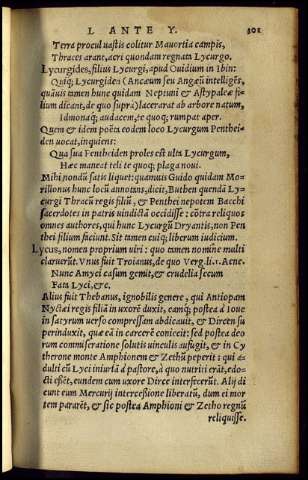 L ANTE Y. 301
Terra procul uastis colitur Mauortia campis,
Thraces arant, acri quondam regnata Lycurgo.
Lycurgides, filius Lycurgi, apud Ouidium in Ibin:
Quiq; Lycurgiden Ancæum seu Angæū intelligēs,
quāuis tamen hunc quidam Neptuni & Astypaleæ fi-
lium dicāt, de quo suprà) lacerarat ab arbore natum,
Idmonaq́; audacem, te quoq; rumpat aper.
Quem & idem poëta eodem loco Lycurgum Penthei-
den uocat, inquiens:
Qua sua Pentheiden proles est ulta Lycurgum,
Hæc maneat teli te quoq; plaga noui.
Mihi nondū satis liquet: quamuis Guido quidam Mo-
rillonus hunc locū annotans, dicit, Buthen quendā Ly-
curgi Thracū regis filiū, & Penthei nepotem Bacchi
sacerdotes in patris uindictā occidisse: cōtra reliquos
omnes authores, qui hunc Lycurgū Dryantis, non Pen
thei filium faciunt. Sit tamen cuiq; liberum iudicium.
Lycus, nomen proprium uiri: quo tamen nomine multi
claruerūt. Vnus fuit Troianus, de quo Verg. li.1. Aene.
Nunc Amyci casum gemit, & crudelia secum
Fata Lyci, &c.
Alius fuit Thebanus, ignobilis genere, qui Antiopam
Nyctæi regis filiā in uxorē duxit, eamq; postea à Ioue
in satyrum uerso compressam abdicauit, & Dircen su
perinduxit, quæ eā in carcerē coniecit: sed postea deo
rum commiseratione solutis uinculis aufugit, & in Cy
therone monte Amphionem & Zethū peperit: qui a-
dulti cū Lyci iniuriā à pastore, à quo nutriti erāt, edo-
cti essēt, eundem cum uxore Dirce interfecerūt. Alij di
cunt eum Mercurij intercessione liberatū, dum ei mor
tem pararēt, & sic postea Amphioni & Zetho regnū
reliquisse.